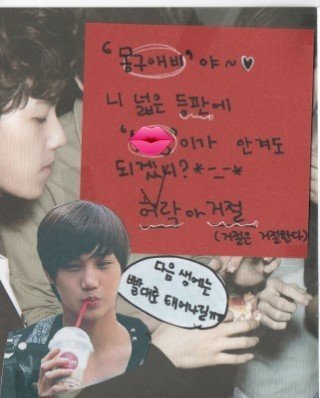 "몽구애비"야~♥
니 넓은 등판에
이가 안겨도
되겠니?*-_-*
허락 or 거절
(거절은 거절한다)
다음 생에는
빨대로 태어나길ㅠㅠ